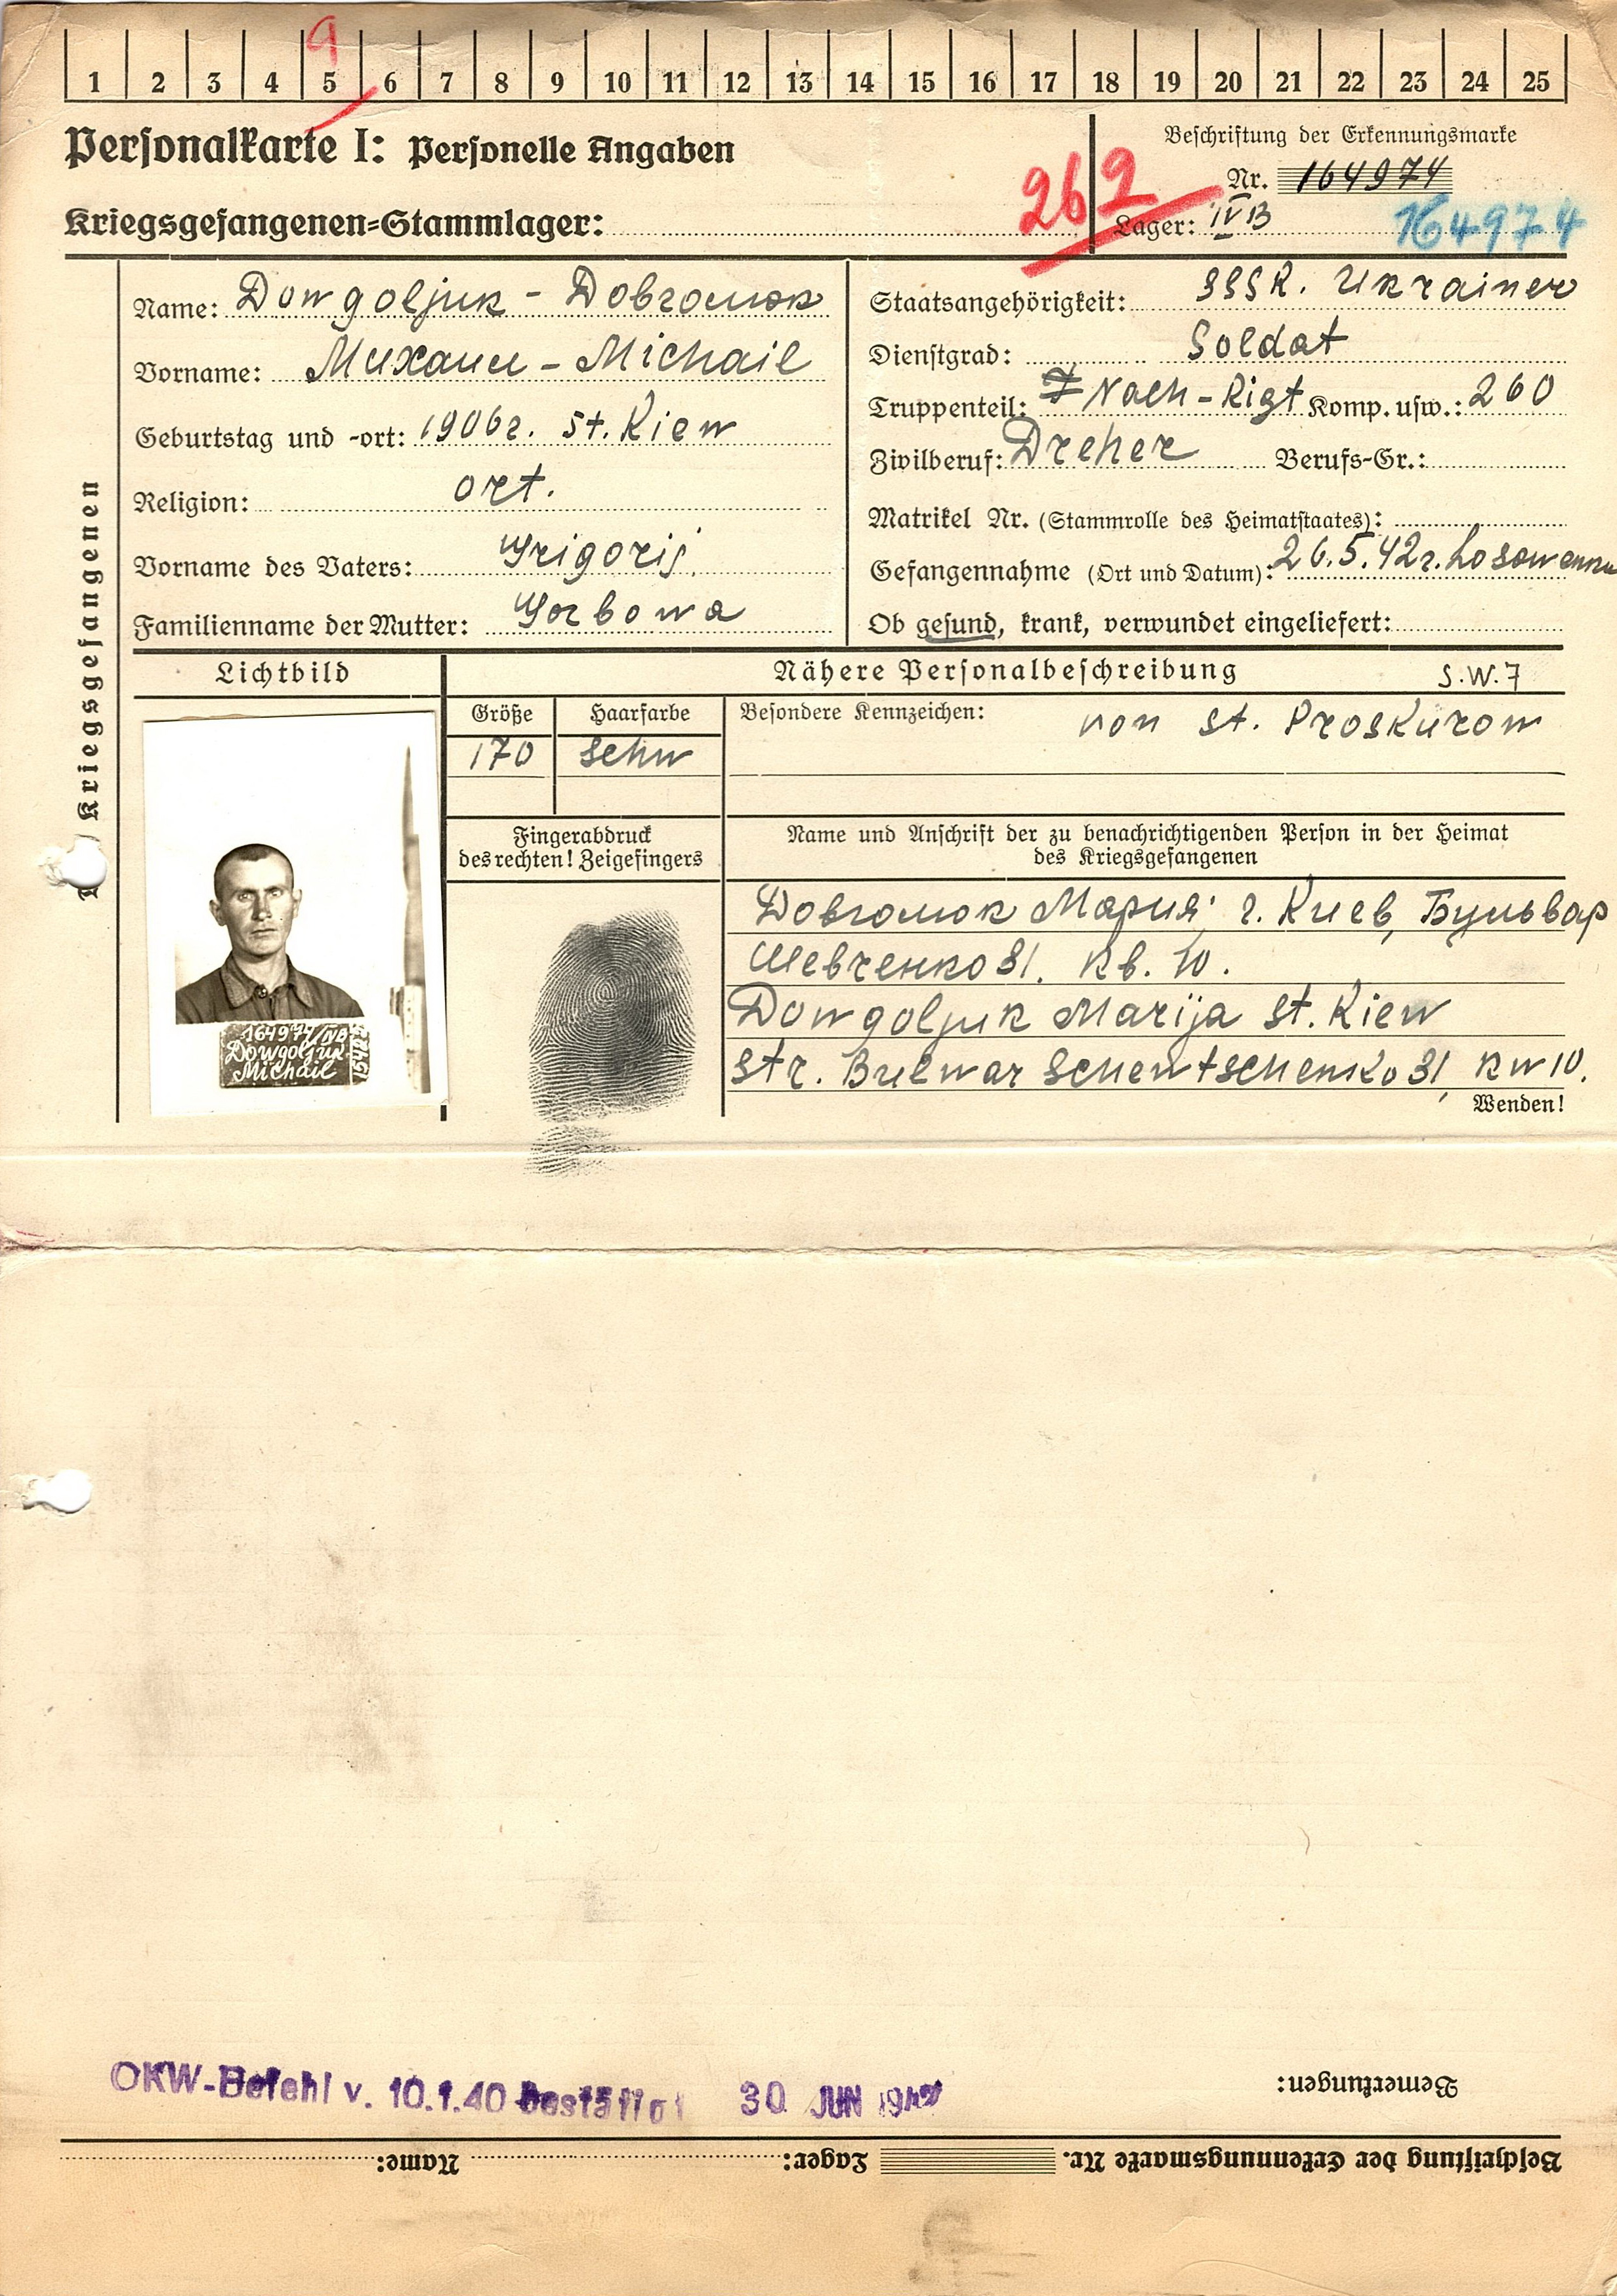 9
1 2 3 4 5 6 7 8 9 10 11 12 13 14 15 16 17 18 19 20 21 22 23 24 25
Personalkarte I: Personelle Angaben
Kriegsgefangenen-Stammlager:
262
Beschriftung der Erkennungsmarke
Nr. 164974
Lager: IVB 164974
Kriegsgefangenen
Name: Dowgoljuk - Довголюк
Vorname: Михаил - Michail
Geburtstag und -ort: 1906г. st. Kiew
Religion: ort.
Vorname des Vaters: Grigorij.
Familienname der Mutter: Gorbowa
Staatsangehörigkeit: SSSR. Ukrainer
Dienstgrad: Soldat
Truppenteil: Nach-Rigt Komp. usw.: 260
Zivilberuf: Dreher Berufs-Gr.:
Matrikel Nr. (Stammrolle des Heimatstaates):
Gefangennahme (Ort und Datum): 26.5.42г.
Ob gesund, krank, verwundet eingeliefert:
Lichtbild
Nähere Personalbeschreibung S.W.7
Größe Haarfarbe Besondere Kennzeichen: von st. Proskurow
170 schw
Fingerabdruck
des rechten! Zeigefingers
Name und Anschrift der zu benachrichtigenden Person in der Heimat
des Kriegsgefangenen
Довголюк Мария г. Киев, Бульвар
Шевченко 31. кв. 10.
Dowgoljuk Marija st. Kiew
str. Bulwar Schewtschenko 31 kw 10.
Wenden!
164974/IVB
Dowgoljuk
Michail
OKW-Befehl v. 10.1.40 bestätigt 30 JUN 1942
Bemerkungen:
Beschriftung der Erkennungsmarke Nr. Lager: Name: